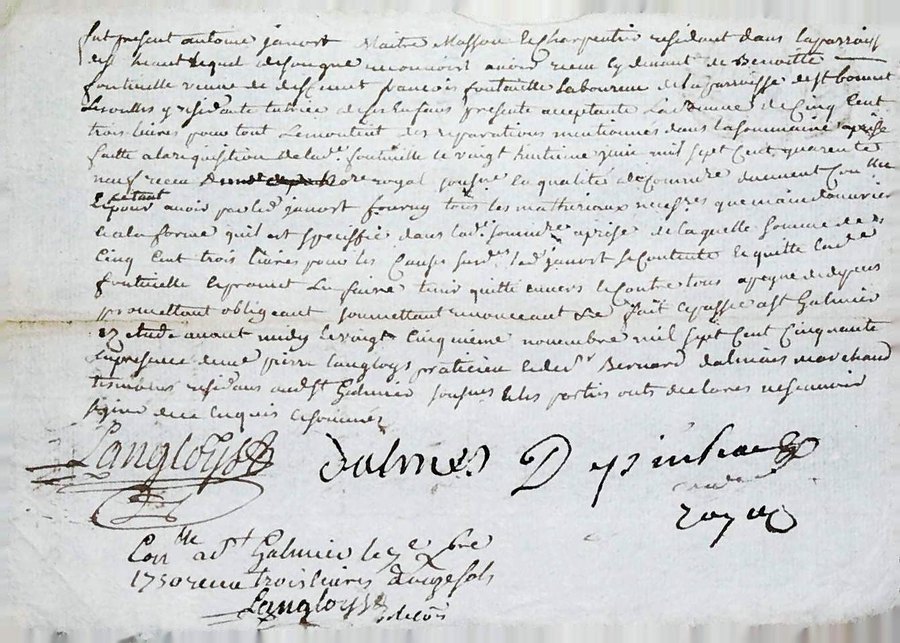 fut present antoine janvort Maitre Masson & Charpentier residant dans la parroisse
de haut lequel de son gré reconnoit avoir receu cy devant de Benoitte
fontinelle veuve de deffunct francois fontinelle Laboureur de la parroisse de st bonnet
Les oulles y residante tutrice de ses Enfans presente acceptante La somme de Cinq Cent
trois livres pour tout Le montant des reparations mentionnés dans la sommaire aprise
faitte a la requisition de lade. fontinelle le vingt huitieme juin mil sept Cent quarente
neuf receu nore royal sousne. en qualité de Commre duement Conlle
Et pour avoir par led. janvort fourny tous les mathereaux necesres que main d'ouvrier
& a la forme qu'il est specifié dans lade. sommre aprise de laquelle somme de
Cinq Cent trois livres pour les Causes susdes led. janvort se Contente En quitte lade
fontinelle & promet L'en faire tenir quitte envers & Contre tous a peyne de depens
promettant obligeant soumettant renonceant &c fait & passé a st Galmier
en etude avant midy le vingt Cinquieme novembre mil sept Cent Cinquante
En presence de me pierre Langloys praticien & de sr Bernard dalmais marchand
temoins residans aud. st Galmier sousnes & les parties ont declarés ne scavoir
signer de ce Enquis & sommés
Langloys
Dalmes
Depinhac
royal
Conlle a st Galmier le 7e xbre
1750 receu trois livres douze sols
Langloys